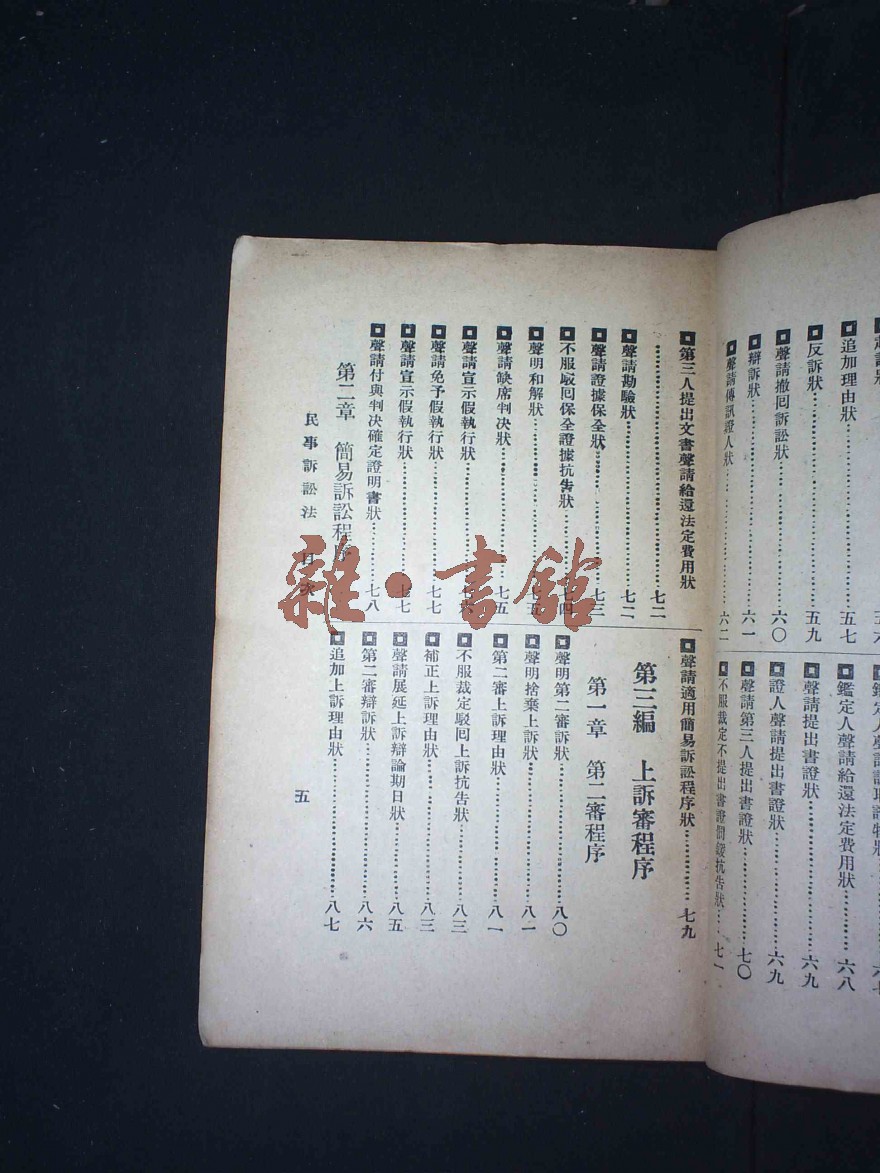 追加理由狀………五七
反訴狀………五九
聲請撤回訴訟狀………六〇
辯訴狀………六一
聲請傳訊證人狀………六二
鑑定人聲請給還法定費用狀………六八
聲請提出書證狀………六九
證人聲請提出書證狀………六九
聲請第三人提出書證狀………七〇
第三人提出文書聲請給還法定費用狀
………七二
聲請勘驗狀………七二
聲請證據保全狀………七三
不服駁回保全證據抗告狀………七四
聲明和解狀………七五
聲請缺席判決狀………七五
聲請宣示假執行狀………七六
聲請免予假執行狀………七七
聲請宣示假執行狀………七七
聲請付與判決確定證明書狀………七八
第二章 簡易訴訟程序
聲請適用簡易訴訟程序狀………七九
第三編 上訴審程序
第一章 第二審程序
聲明第二審訴狀………八〇
聲明捨棄上訴狀………八一
第二審上訴理由狀………八一
不服裁定駁回上訴抗告狀………八三
補正上訴理由狀………八三
聲請展延上訴辯論期日狀………八五
第二審辯訴狀………八六
追加上訴理由狀………八七
民事訴訟法 目次
五
雜·書館